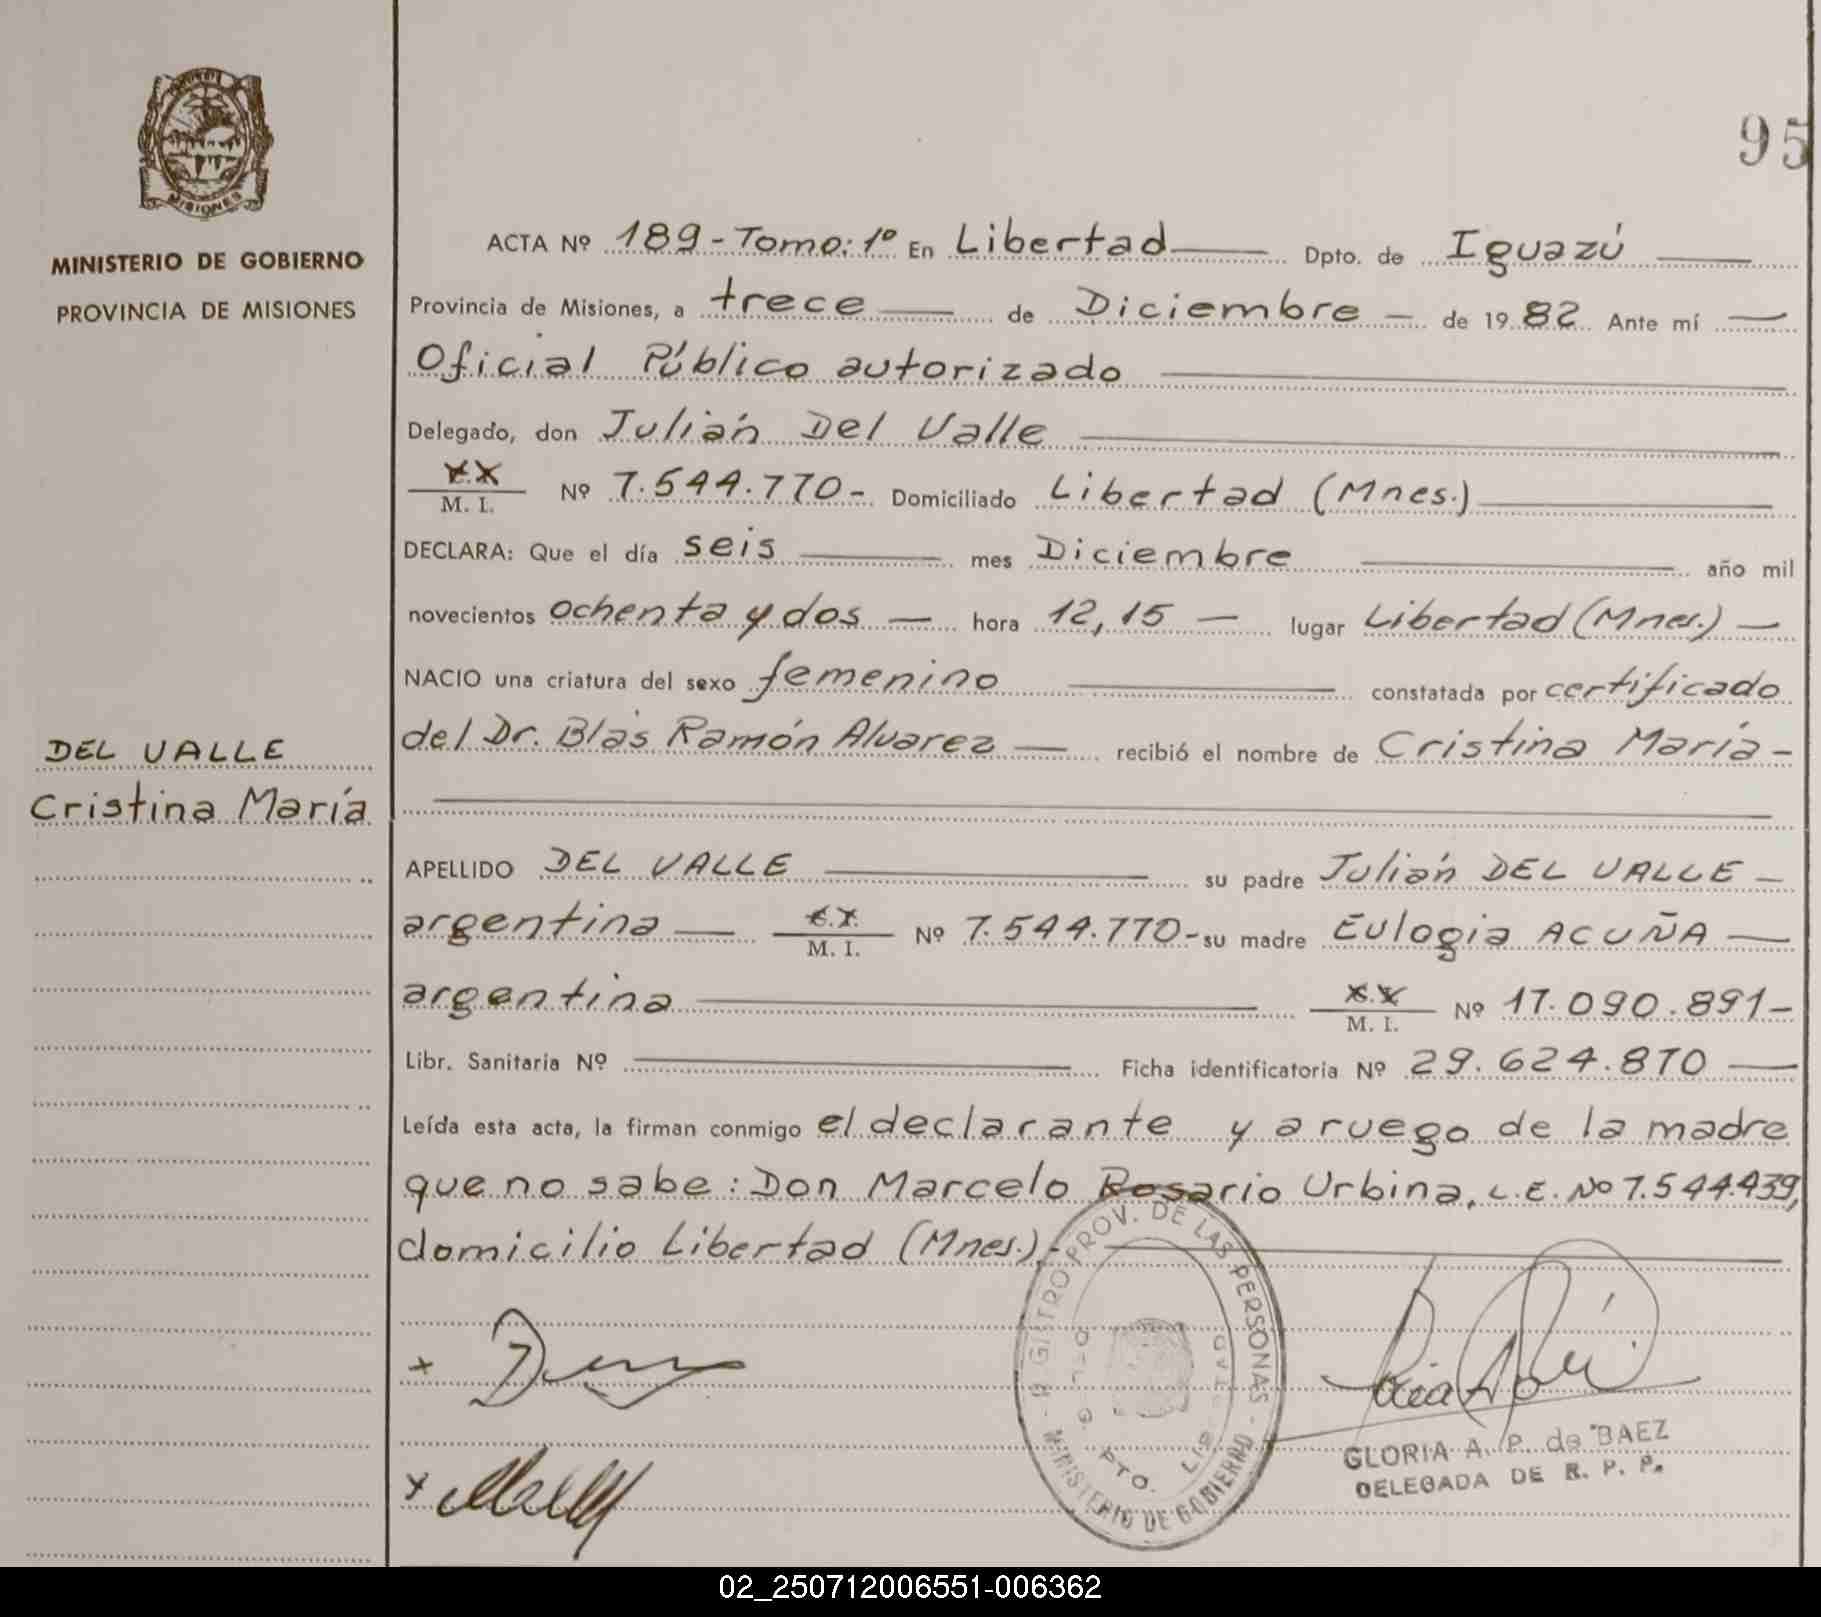 95
MISIONES
MINISTERIO DE GOBIERNO
PROVINCIA DE MISIONES
DEL VALLE
Cristina María
ACTA Nº 189 - Tomo: 1º En Libertad Dpto. de Iguazú
Provincia de Misiones, a trece de Diciembre de 1982 Ante mí
Oficial Público autorizado
Delegado, don Julián Del Valle
M. I. Nº 7.544.770- Domiciliado Libertad (Mnes.)
DECLARA: Que el día seis mes Diciembre año mil
novecientos ochenta y dos hora 12,15 lugar Libertad (Mnes.)
NACIO una criatura del sexo femenino constatada por certificado
del Dr. Blás Ramón Alvarez recibió el nombre de Cristina María
APELLIDO DEL VALLE su padre Julián DEL VALLE
argentina M. I. Nº 7.544.770- su madre Eulogia ACUÑA
argentina M. I. Nº 17.090.891-
Libr. Sanitaria Nº Ficha identificatoria Nº 29.624.870
Leída esta acta, la firman conmigo el declarante y a ruego de la madre
que no sabe: Don Marcelo Rosario Urbina, L.E. Nº 7.544.439,
domicilio Libertad (Mnes.)-
REGISTRO PROV. DE LAS PERSONAS - MINISTERIO DE GOBIERNO
PTO. LIBERTAD
GLORIA A. P. de BAEZ
DELEGADA DE R. P. P.
02_250712006551-006362